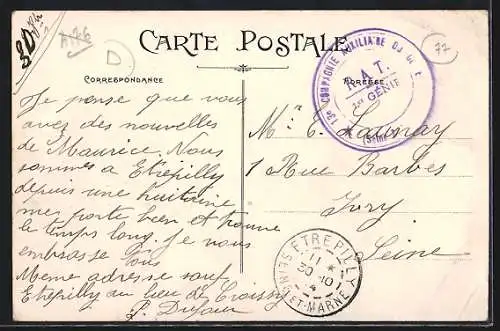 CARTE POSTALE
CORRESPONDANCE
ADRESSE
77
D
13e COMPAGNIE AUXILIAIRE DU
R.A.T.
1er GÉNIE
Je pense que vous
avez des nouvelles
de Maurice. Nous
sommes a Etrepilly
depuis une huitaine
me porte bien et trouve
le temps long. Je vous
embrasse Tous
Meme adresse sauf
Etrepilly au lieu de Croissy
P. Dufour
Launay
1 Rue Barbes
Ivry
Seine
ETREPILLY
11
30 -10
14
SEINE-ET-MARNE